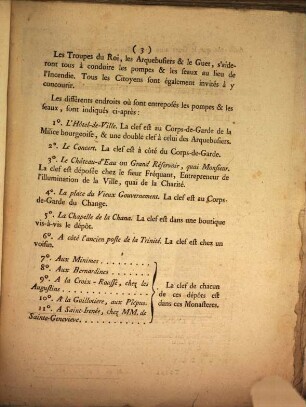 ( 3 )
Les Troupes du Roi, les Arquebusiers & le Guet, s'aide-
ront tous à conduire les pompes & les seaux au lieu de
l'Incendie. Tous les Citoyens sont également invités à y
concourir.
Les différents endroits où sont entreposés les pompes & les
seaux, sont indiqués ci-après :
1°. L'Hôtel-de-Ville. La clef est au Corps-de-Garde de la
Milice bourgeoise, & une double clef à celui des Arquebusiers.
2°. Le Concert. La clef est à côté du Corps-de-Garde.
3°. Le Château-d'Eau ou Grand Réservoir, quai Monsieur.
La clef est déposée chez le sieur Fréquant, Entrepreneur de
l'illumination de la Ville, quai de la Charité.
4°. La place du Vieux Gouvernement. La clef est au Corps-
de-Garde du Change.
5°. La Chapelle de la Chana. La clef est dans une boutique
vis-à-vis le dépôt.
6°. A côté l'ancien poste de la Trinité. La clef est chez un
voisin.
7°. Aux Minimes.
8°. Aux Bernardines.
9°. A la Croix-Rousse, chez les
Augustins.
10°. A la Guillotiere, aux Picpus.
11°. A Saint-Irenée, chez MM. de
Sainte-Genevieve.
La clef de chacun
de ces dépôts est
dans ces Monasteres.